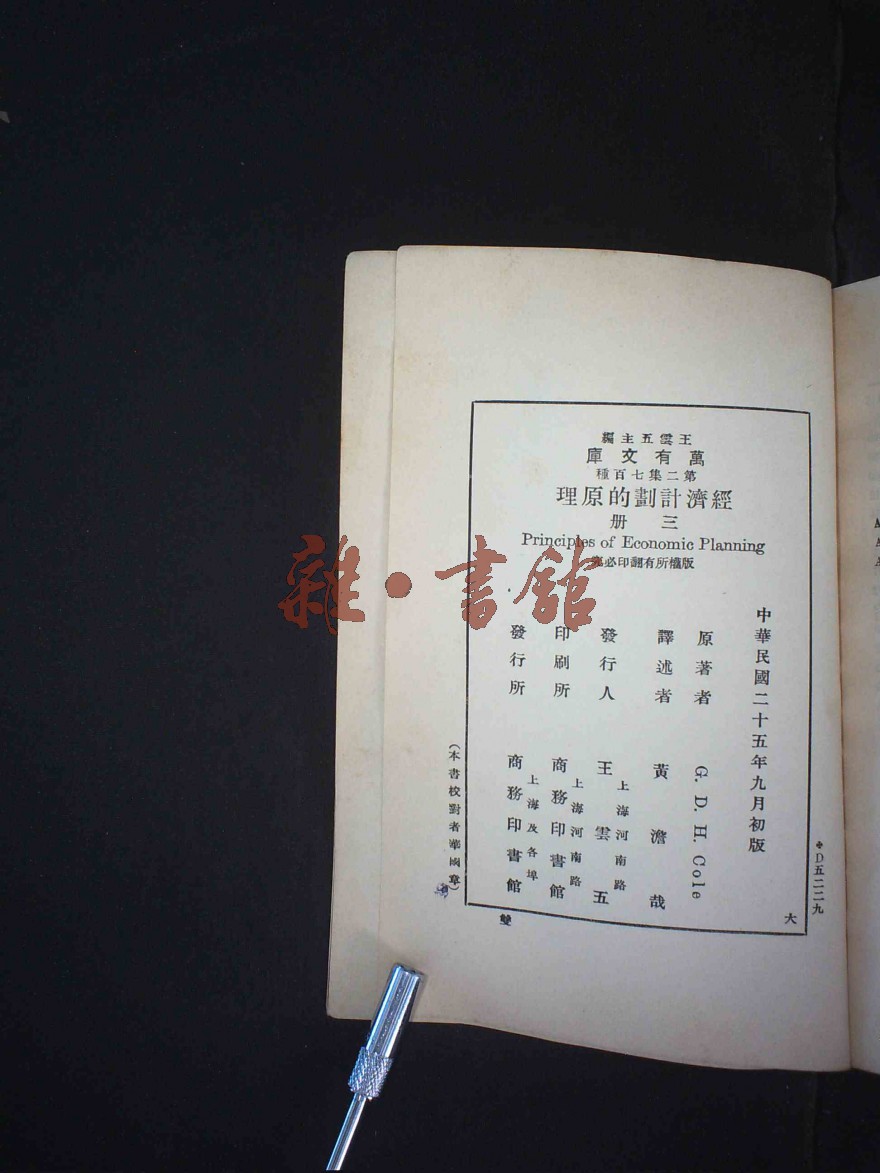 王雲五主編
萬有文庫
第二集七百種
經濟計劃的原理
三册
Principles of Economic Planning
版權所有翻印必究
中華民國二十五年九月初版
原著者 G. D. H. Cole
譯述者 黃澹哉
發行人 王雲五
上海河南路
印刷所 商務印書館
上海河南路
發行所 商務印書館
上海及各埠
(本書校對者華國章)
✥D五二二九
大
雙
雜·書館